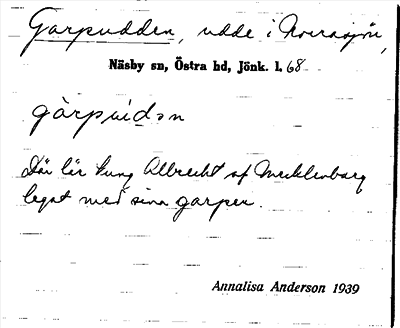 Garpudden, udde i Norrasjön,
Näsby sn, Östra hd, Jönk. l. 68
gàrpuḍən
Där lär kung Albrecht af Mecklenburg
legat med sina garper.
Annalisa Anderson 1939